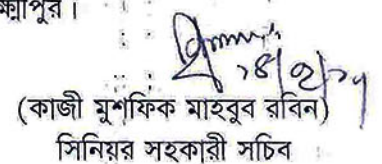 ১৪/২/২১
(কাজী মুশফিক মাহবুব রবিন)
সিনিয়র সহকারী সচিব